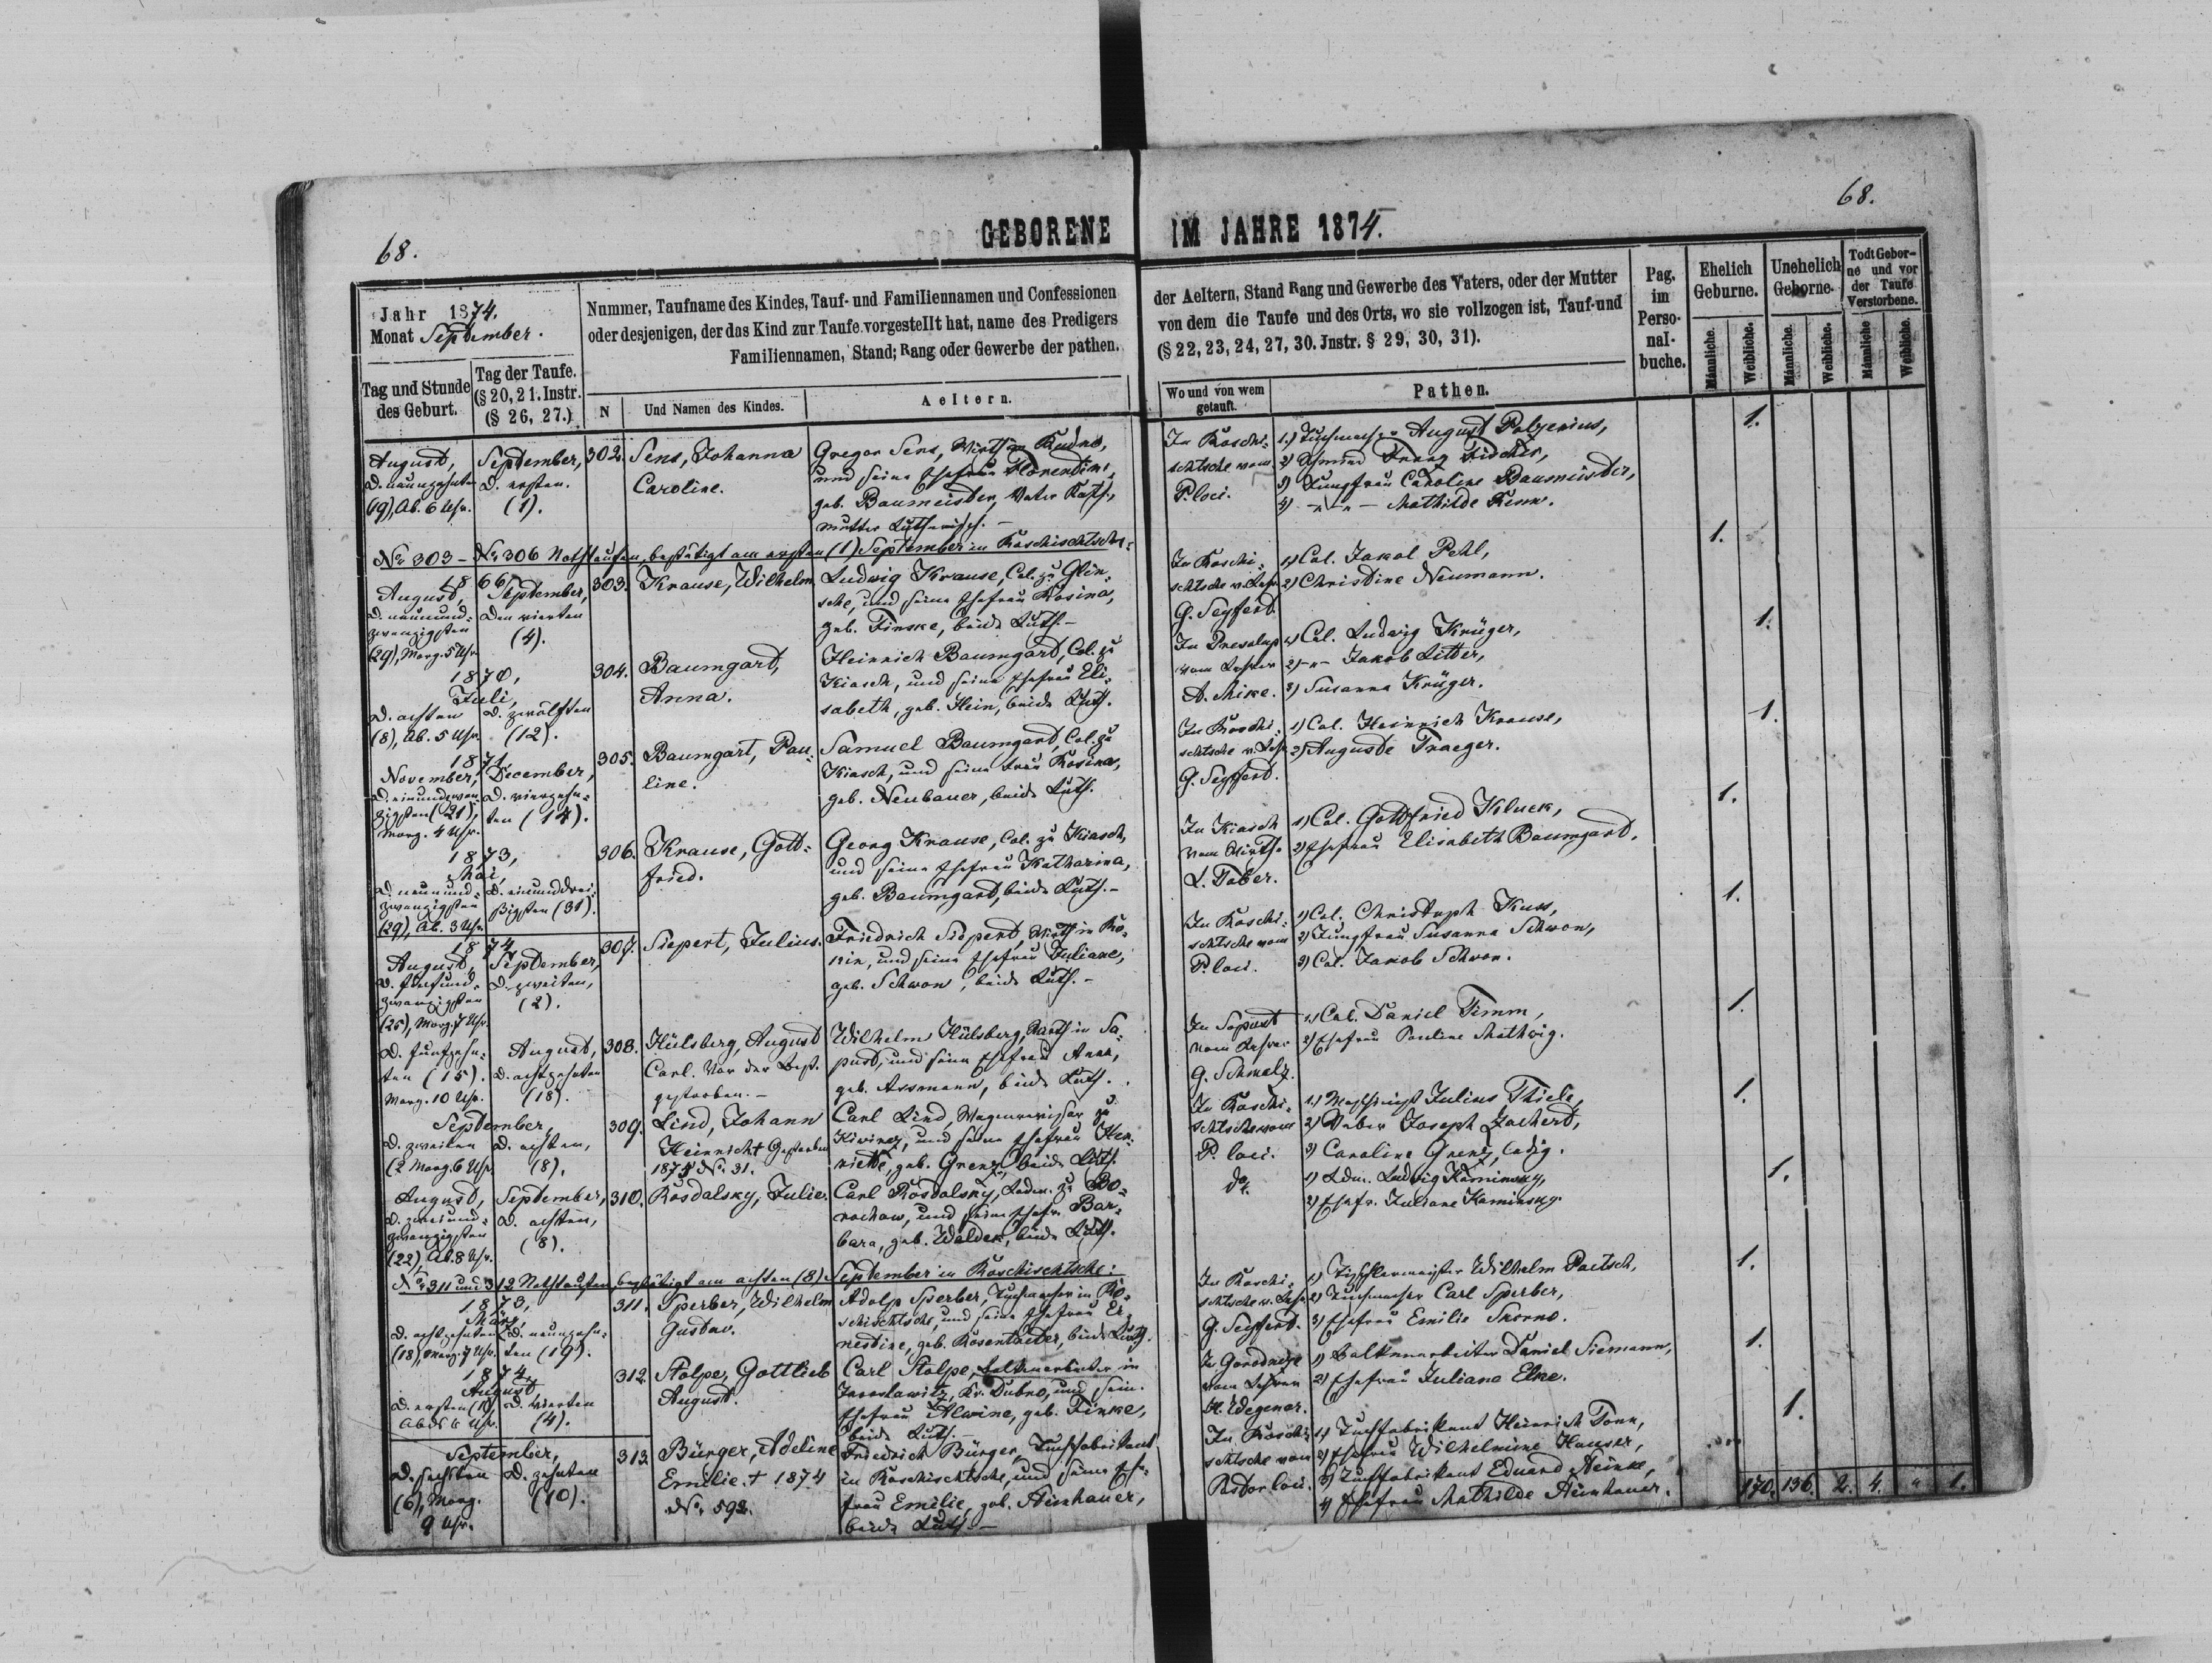 68.
GEBORENE IM JAHRE 1874.
68.
Jahr 1874.
Monat September.
Tag und Stunde
des Geburt.
Tag der Taufe.
(§ 20, 21. Instr.
(§ 26, 27.)
Nummer, Taufname des Kindes, Tauf- und Familiennamen und Confessionen
oder desjenigen, der das Kind zur Taufe vorgestellt hat, name des Predigers
Familiennamen, Stand; Rang oder Gewerbe der pathen.
N
Und Namen des Kindes.
Aeltern.
der Aeltern, Stand Rang und Gewerbe des Vaters, oder der Mutter
von dem die Taufe und des Orts, wo sie vollzogen ist, Tauf-und
(§ 22, 23, 24, 27, 30. Jnstr. § 29, 30, 31).
Wo und von wem
getauft.
Pathen.
Pag.
im
Perso-
nal-
buche.
Ehelich
Geburne.
Unehelich
Geborne.
Todt Gebor-
ne und vor
der Taufe
Verstorbene.
Männliche.
Weibliche.
Männliche.
Weibliche.
Männliche
Weibliche.
August,
d. neunzehnten
(19), Ab. 6 Uhr.
September,
d. ersten.
(1).
302.
Sens, Johanna
Caroline.
Gregor Sens, Wirth in Rudno,
und seine Ehefrau Florentine,
geb. Baumeister, Vater Kath.,
Mutter Lutherisch.-
In Roschi-
schtsche vom
P. loci.
1) Tuchmacher August
2) Schmied Franz Fischer,
3) Jungfrau Caroline Baumeister,
4) -"-"- Mathilde
1.
No 303 - No 306 Nothtaufen, bestätigt am ersten (1) September in Roschischtsche:
1866,
August,
d. neunund-
zwanzigsten
(29), Morg. 5 Uhr
September,
den vierten
(4).
303.
Krause, Wilhelm
Ludwig Krause, Col. zu Glin-
sche, und seine Ehefrau Rosina,
geb. Finske, beide Luth.-
In Roschi-
schtsche v. Lehr.
G. Seyferd.
1) Col. Jakob Pehl,
2) Christine Neumann.
1.
1870,
Juli,
d. achten
(8), Ab. 5 Uhr.
d. zwölften
(12).
304.
Baumgart,
Anna.
Heinrich Baumgard, Col. zu
Kiasch, und seine Ehefrau Eli-
sabeth, geb. Hein, beide Luth.
In
vom Lehrer
A. Mike.
1) Col. Ludwig Krüger,
2) -"- Jakob Litter,
3) Susanna Krüger.
1.
1871,
November,
d. einundzwan-
zigsten (21),
Morg. 4 Uhr.
December,
d. vierzehn-
ten (14).
305.
Baumgart, Pau-
line.
Samuel Baumgard, Col. zu
Kiasch, und seine Frau Rosina,
geb. Neubauer, beide Luth.
In Roschi-
schtsche v. Lehr.
G. Seyfferd.
1) Col. Heinrich Krause,
2) Auguste Traeger.
1.
1873,
Mai,
d. neunund-
zwanzigsten
(29), Ab. 3 Uhr
d. einunddrei-
ßigsten (31).
306.
Krause, Gott-
fried.
Georg Krause, Col. zu Kiasch,
und seine Ehefrau Katharina,
geb. Baumgard, beide Luth.-
In Kiasch
vom Wirth
L. Tober.
1) Col. Gottfried Kluck,
2) Ehefrau Elisabeth Baumgard.
1.
1874
August,
d. fünfund-
zwanzigsten
(25), Morg. 7 Uhr.
September,
d. zweiten,
(2).
307.
Siepert, Julius.
Friedrich Siepert, Wirth in
und seine Ehefrau Juliane,
geb. Schwon, beide Luth.-
In Roschi-
schtsche vom
P. loci.
1) Col. Christoph Kuss,
2) Jungfrau Susanna Schwon,
3) Col. Jakob Schwon.
1.
d. fünfzehn-
ten (15).
Morg. 10 Uhr.
August,
d. achtzehnten
(18).
308.
Hülsberg, August
Carl. Vor der Best.
gestorben.-
Wilhelm Hülsberg, Wirth in Sa-
pust, und seine Ehefrau Anna,
geb. Assmann, beide Luth.
In Sapust
vom Lehrer
G. Schmalz.
1) Col. Daniel Timm,
2) Ehefrau Pauline Mathwig.
1.
September,
d. zweiten
(2 Morg. 6 Uhr
d. achten,
(8).
309.
Lind, Johann
Heinrich † Gestorben
1875 No. 31.
Carl Lind,
und seine Ehefrau Hen-
riette, geb. Grenz, beide Luth.
In Roschi-
schtsche vom
P. loci.
1) Maschinist Julius Thiele,
2) Weber Joseph Zachert,
3) Caroline Grenz, ledig.
1.
August,
d. zweiund-
zwanzigsten
(22), Ab. 8 Uhr.
September,
d. achten,
(8).
310.
Rosdalsky, Julie.
Carl Rosdalsky, Ladm. zu Bo-
rochow, und seine Ehefr. Bar-
bara, geb. Walder, beide Luth.
do.
1) Ldm. Ludwig Kaminsky,
2) Ehefr. Juliane Kaminsky.
1.
No 311 und 312 Nothtaufen, bestätigt am achten (8) September in Roschischtsche:
1873,
März,
d. achtzehnten
(18), Morg. 7 Uhr.
d. neunzehn-
ten (19).
311.
Sperber, Wilhelm
Gustav.
Adolp Sperber, Tuchmacher in Ro-
schischtsche, und seine Ehefrau Er-
nestine, geb. Rosentreter, beide Luth.
In Roschi-
schtsche v. Lehr.
G. Seyfferd.
1) Tischlermeister Wilhelm Paetsch,
2) Tuchmacher Carl Sperber,
3) Ehefrau Emilie Skorno.
1.
1874,
August,
d. ersten (1)
Abds 6 Uhr.
d. vierten
(4).
312.
Stolpe, Gottlieb
August.
Carl Stolpe, Balkenarbeiter in
Jaroslawitz, Kr. Dubno, und sein.
Ehefrau Alwine, geb. Finke,
beide Luth.
In
vom Lehrer
H. Wegener.
1) Balkenarbeiter Daniel Siemann,
2) Ehefrau Juliane Elke.
1.
September,
d. sechsten
(6), Morg.
9 Uhr.
d. zehnten
(10).
313.
Bürger, Adeline
Emilie. † 1874
No. 592.
Friedrich Bürger, Tuchfabrikant
in Roschischtsche, und seine Ehe-
frau Emilie, geb. Neinhauer,
beide Luth.-
In Roschi-
schtsche vom
Pastor loci.
1) Tuchfabrikant Heinrich Tonn,
2) Ehefrau Wilhelmine Hauser,
3) Tuchfabrikant Eduard Reinke,
4) Ehefrau Mathilde Neinhauer.
1.
170. 136. 2. 4. " 1.